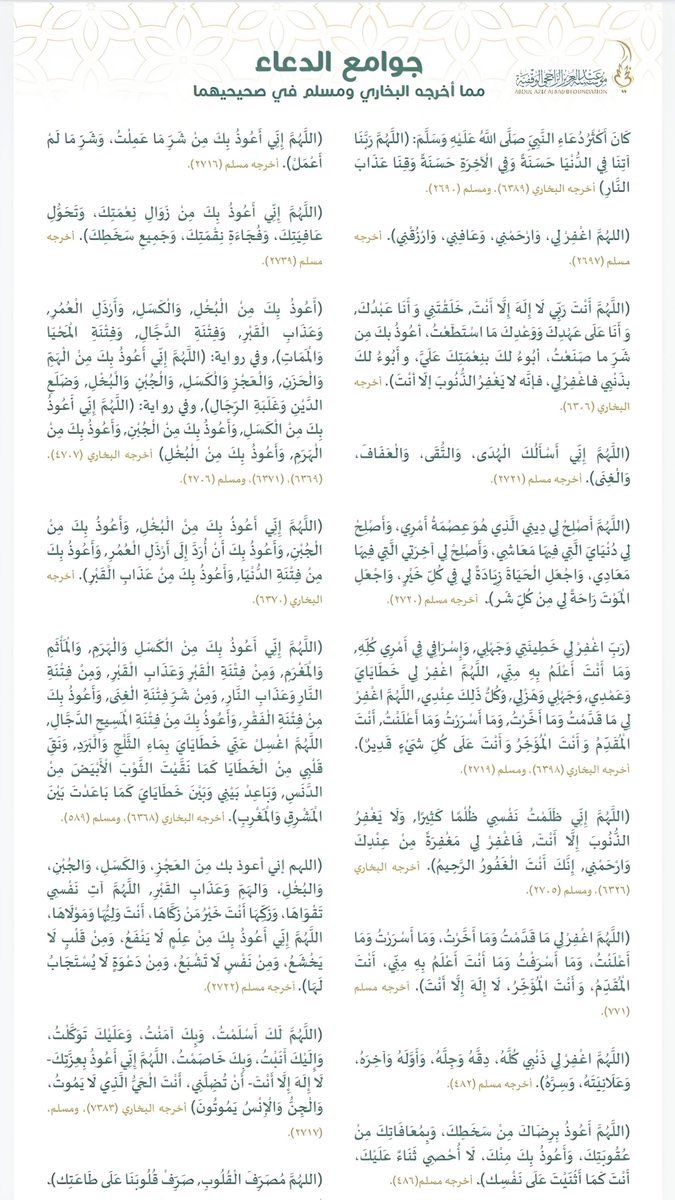 جوامع الدعاء
مما أخرجه البخاري ومسلم في صحيحيهما
مؤسسة عبدالعزيز الراجحي الوقفية
ABDUL AZIZ ALRAJHI FOUNDATION
كَانَ أَكْثَرُ دُعَاءِ النَّبِيِّ صَلَّى اللَّهُ عَلَيْهِ وَسَلَّمَ: (اللَّهُمَّ رَبَّنَا
آتِنَا فِي الدُّنْيَا حَسَنَةً وَفِي الْآخِرَةِ حَسَنَةً وَقِنَا عَذَابَ
النَّارِ) أخرجه البخاري (٦٣٨٩)، ومسلم (٢٦٩٠).
(اللهُمَّ اغْفِرْ لِي، وَارْحَمْنِي، وَعَافِنِي، وَارْزُقْنِي). أخرجه
مسلم (٢٦٩٧).
(اللَّهُمَّ أَنْتَ رَبِّي لَا إِلَهَ إِلَّا أَنْتَ, خَلَقْتَنِي وَ أَنَا عَبْدُكَ,
وَ أَنَا عَلَى عَهْدِكَ وَوَعْدِكَ مَا اسْتَطَعْتُ، أعُوذُ بكَ مِن
شَرِّ ما صَنَعْتُ، أبُوءُ لكَ بنِعْمَتِكَ عَلَيَّ، و أَبُوءُ لكَ
بذَنْبِي فاغْفِرْ لِي، فإنَّه لا يَغْفِرُ الذُّنُوبَ إلَّا أنْتَ). أخرجه
البخاري (٦٣٠٦).
(اللَّهُمَّ إِنِّي أَسْأَلُكَ الْهُدَى، وَالتُّقَى، وَالْعَفَافَ،
وَالْغِنَى). أخرجه مسلم (٢٧٢١).
(اللَّهُمَّ أَصْلِحْ لِي دِينِي الَّذِي هُوَ عِصْمَةُ أَمْرِي، وَأَصْلِحْ
لِي دُنْيَايَ الَّتِي فِيهَا مَعَاشِي، وَأَصْلِحْ لِي آخِرَتِي الَّتِي فِيهَا
مَعَادِي، وَاجْعَلِ الْحَيَاةَ زِيَادَةً لِي فِي كُلِّ خَيْرٍ، وَاجْعَلِ
الْمَوْتَ رَاحَةً لِي مِنْ كُلِّ شَر). أخرجه مسلم (٢٧٢٠).
(رَبِّ اغْفِرْ لِي خَطِيئَتِي وَجَهْلِي, وَإِسْرَافِي فِي أَمْرِي كُلِّهِ,
وَمَا أَنْتَ أَعْلَمُ بِهِ مِنِّي, اللَّهُمَّ اغْفِرْ لِي خَطَايَايَ
وَعَمْدِي, وَجَهْلِي وَهَزْلِي, وَكُلُّ ذَلِكَ عِنْدِي, اللَّهُمَّ اغْفِرْ
لِي مَا قَدَّمْتُ وَمَا أَخَّرْتُ, وَمَا أَسْرَرْتُ وَمَا أَعْلَنْتُ, أَنْتَ
الْمُقَدِّمُ وَ أَنْتَ الْمُؤَخِّرُ وَ أَنْتَ عَلَى كُلِّ شَيْءٍ قَدِيرٌ).
أخرجه البخاري (٦٣٩٨)، ومسلم (٢٧١٩).
(اللَّهُمَّ إِنِّي ظَلَمْتُ نَفْسِي ظُلْمًا كَثِيرًا, وَلَا يَغْفِرُ
الذُّنُوبَ إِلَّا أَنْتَ, فَاغْفِرْ لِي مَغْفِرَةً مِنْ عِنْدِكَ
وَارْحَمْنِي, إِنَّكَ أَنْتَ الْغَفُورُ الرَّحِيمُ). أخرجه البخاري
(٦٣٢٦)، ومسلم (٢٧٠٥).
(اللَّهُمَّ اغْفِرْ لِي مَا قَدَّمْتُ وَمَا أَخَّرْتُ، وَمَا أَسْرَرْتُ وَمَا
أَعْلَنْتُ، وَمَا أَسْرَفْتُ وَمَا أَنْتَ أَعْلَمُ بِهِ مِنِّي، أَنْتَ
الْمُقَدِّمُ، وَ أَنْتَ الْمُؤَخِّرُ، لَا إِلَهَ إِلَّا أَنْتَ). أخرجه مسلم
(٧٧١).
(اللَّهُمَّ اغْفِرْ لِي ذَنْبِي كُلَّهُ، دِقَّهُ وَجِلَّهُ، وَأَوَّلَهُ وَآخِرَهُ،
وَعَلَانِيَتَهُ، وَسِرَّهُ). أخرجه مسلم (٤٨٢).
(اللَّهُمَّ أَعُوذُ بِرِضَاكَ مِنْ سَخَطِكَ، وَبِمُعَافَاتِكَ مِنْ
عُقُوبَتِكَ، وَأَعُوذُ بِكَ مِنْكَ، لَا أُحْصِي ثَنَاءً عَلَيْكَ،
أَنْتَ كَمَا أَثْنَيْتَ عَلَى نَفْسِكَ). أخرجه مسلم(٤٨٦).
(اللَّهُمَّ إِنِّي أَعُوذُ بِكَ مِنْ شَرِّ مَا عَمِلْتُ، وَشَرِّ مَا لَمْ
أَعْمَلْ). أخرجه مسلم (٢٧١٦).
(اللَّهُمَّ إِنِّي أَعُوذُ بِكَ مِنْ زَوَالِ نِعْمَتِكَ، وَتَحَوُّلِ
عَافِيَتِكَ، وَفُجَاءَةِ نِقْمَتِكَ، وَجَمِيعِ سَخَطِكَ). أخرجه
مسلم (٢٧٣٩).
(أَعُوذُ بِكَ مِنْ الْبُخْلِ، وَالْكَسَلِ، وَأَرْذَلِ الْعُمُرِ,
وَعَذَابِ الْقَبْرِ, وَفِتْنَةِ الدَّجَّالِ, وَفِتْنَةِ الْمَحْيَا
وَالْمَمَاتِ)، وفي رواية: (اللَّهُمَّ إِنِّي أَعُوذُ بِكَ مِنْ الْهَمِّ
وَالْحَزَنِ, وَالْعَجْزِ وَالْكَسَلِ, وَالْجُبْنِ وَالْبُخْلِ, وَضَلَعِ
الدَّيْنِ وَغَلَبَةِ الرِّجَالِ)، وفي رواية: (اللَّهُمَّ إِنِّي أَعُوذُ
بِكَ مِنْ الْكَسَلِ, وَأَعُوذُ بِكَ مِنْ الْجُبْنِ, وَأَعُوذُ بِكَ مِنْ
الْهَرَمِ, وَأَعُوذُ بِكَ مِنْ الْبُخْلِ) أخرجه البخاري (٤٧٠٧)،
(٦٣٦٩)، (٦٣٧١)، ومسلم (٢٧٠٦).
(اللَّهُمَّ إِنِّي أَعُوذُ بِكَ مِنْ الْبُخْلِ, وَأَعُوذُ بِكَ مِنْ
الْجُبْنِ, وَأَعُوذُ بِكَ أَنْ أُرَدَّ إِلَى أَرْذَلِ الْعُمُرِ, وَأَعُوذُ بِكَ
مِنْ فِتْنَةِ الدُّنْيَا, وَأَعُوذُ بِكَ مِنْ عَذَابِ الْقَبْرِ). أخرجه
البخاري (٦٣٧٠).
(اللَّهُمَّ إِنِّي أَعُوذُ بِكَ مِنْ الْكَسَلِ وَالْهَرَمِ, وَالْمَأْثَمِ
وَالْمَغْرَمِ, وَمِنْ فِتْنَةِ الْقَبْرِ وَعَذَابِ الْقَبْرِ, وَمِنْ فِتْنَةِ
النَّارِ وَعَذَابِ النَّارِ, وَمِنْ شَرِّ فِتْنَةِ الْغِنَى, وَأَعُوذُ بِكَ
مِنْ فِتْنَةِ الْفَقْرِ, وَأَعُوذُ بِكَ مِنْ فِتْنَةِ الْمَسِيحِ الدَّجَّالِ,
اللَّهُمَّ اغْسِلْ عَنِّي خَطَايَايَ بِمَاءِ الثَّلْجِ وَالْبَرَدِ, وَنَقِّ
قَلْبِي مِنْ الْخَطَايَا كَمَا نَقَّيْتَ الثَّوْبَ الْأَبْيَضَ مِنْ
الدَّنَسِ, وَبَاعِدْ بَيْنِي وَبَيْنَ خَطَايَايَ كَمَا بَاعَدْتَ بَيْنَ
الْمَشْرِقِ وَالْمَغْرِبِ). أخرجه البخاري (٦٣٦٨)، ومسلم (٥٨٩).
(اللهم إني أعوذ بك مِنَ العَجْزِ، وَالكَسَلِ، وَالجُبْنِ،
وَالبُخْلِ، وَالهَمِّ وَعَذَابِ القَبْرِ, اللَّهُمَّ آتِ نَفْسِي
تَقْوَاهَا، وَزَكِّهَا أَنْتَ خَيْرُ مَنْ زَكَّاهَا، أَنْتَ وَلِيُّهَا وَمَوْلَاهَا،
اللَّهُمَّ إِنِّي أَعُوذُ بِكَ مِنْ عِلْمٍ لَا يَنْفَعُ، وَمِنْ قَلْبٍ لَا
يَخْشَعُ، وَمِنْ نَفْسٍ لَا تَشْبَعُ، وَمِنْ دَعْوَةٍ لَا يُسْتَجَابُ
لَهَا). أخرجه مسلم (٢٧٢٢).
(اللَّهُمَّ لَكَ أَسْلَمْتُ، وَبِكَ آمَنْتُ، وَعَلَيْكَ تَوَكَّلْتُ،
وَإِلَيْكَ أَنَبْتُ، وَبِكَ خَاصَمْتُ، اللَّهُمَّ إِنِّي أَعُوذُ بِعِزَّتِكَ-
لَا إِلَهَ إِلَّا أَنْتَ- أَنْ تُضِلَّنِي، أَنْتَ الْحَيُّ الَّذِي لَا يَمُوتُ،
وَالْجِنُّ وَالْإِنْسُ يَمُوتُونَ) أخرجه البخاري (٧٣٨٣)، ومسلم.
(٢٧١٧).
(اللَّهُمَّ مُصَرِّفَ الْقُلُوبِ, صَرِّفْ قُلُوبَنَا عَلَى طَاعَتِكَ).